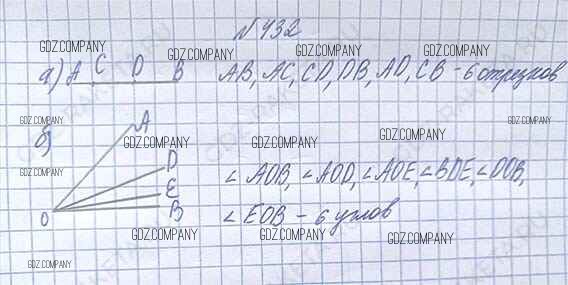 N 432
GDZ.COMPANY GDZ.COMPANY GDZ.COMPANY GDZ.COMPANY
а) A C D B AB, AC, CD, DB, AD, CB - 6 отрезков
GDZ.COMPANY GDZ.COMPANY GDZ.COMPANY
б) A
GDZ.COMPANY GDZ.COMPANY
GDZ.COMPANY
D ∠AOB, ∠AOD, ∠AOE, ∠BDE, ∠DOB,
E
O B ∠EOB - 6 углов
GDZ.COMPANY GDZ.COMPANY GDZ.COMPANY
GDZ.COMPANY